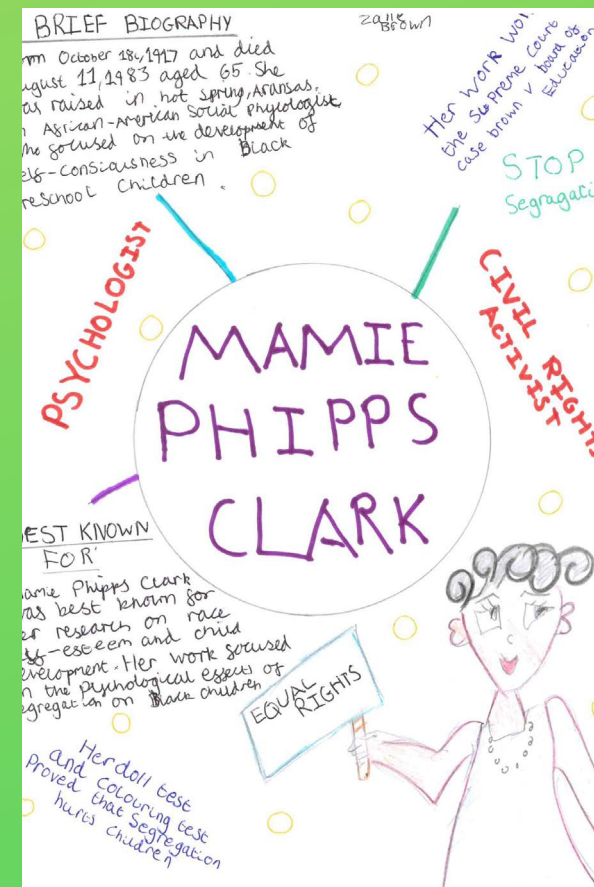 BRIEF BIOGRAPHY
rn October 18th, 1917 and died
ugust 11, 1983 aged 65. She
as raised in hot spring, Aransas.
n African-American Social Phycologist,
ho focused on the development of
elf-consiousness in Black
reschool Children.
zane
Brown
Her work wor
the Supreme Court
case brown v board of
Education
STOP
Segragati
PSYCHOLOGIST
CIVIL RIGHTS
ACTIVIST
MAMIE
PHIPPS
CLARK
EST KNOWN
FOR
amie Phipps Clark
as best known for
er research on race
-esteem and child
evelopment. Her work focused
n the Psychological effects of
egregation on Black children
EQUAL
RIGHTS
Her doll test
and colouring test
Proved that Segregation
hurts Children